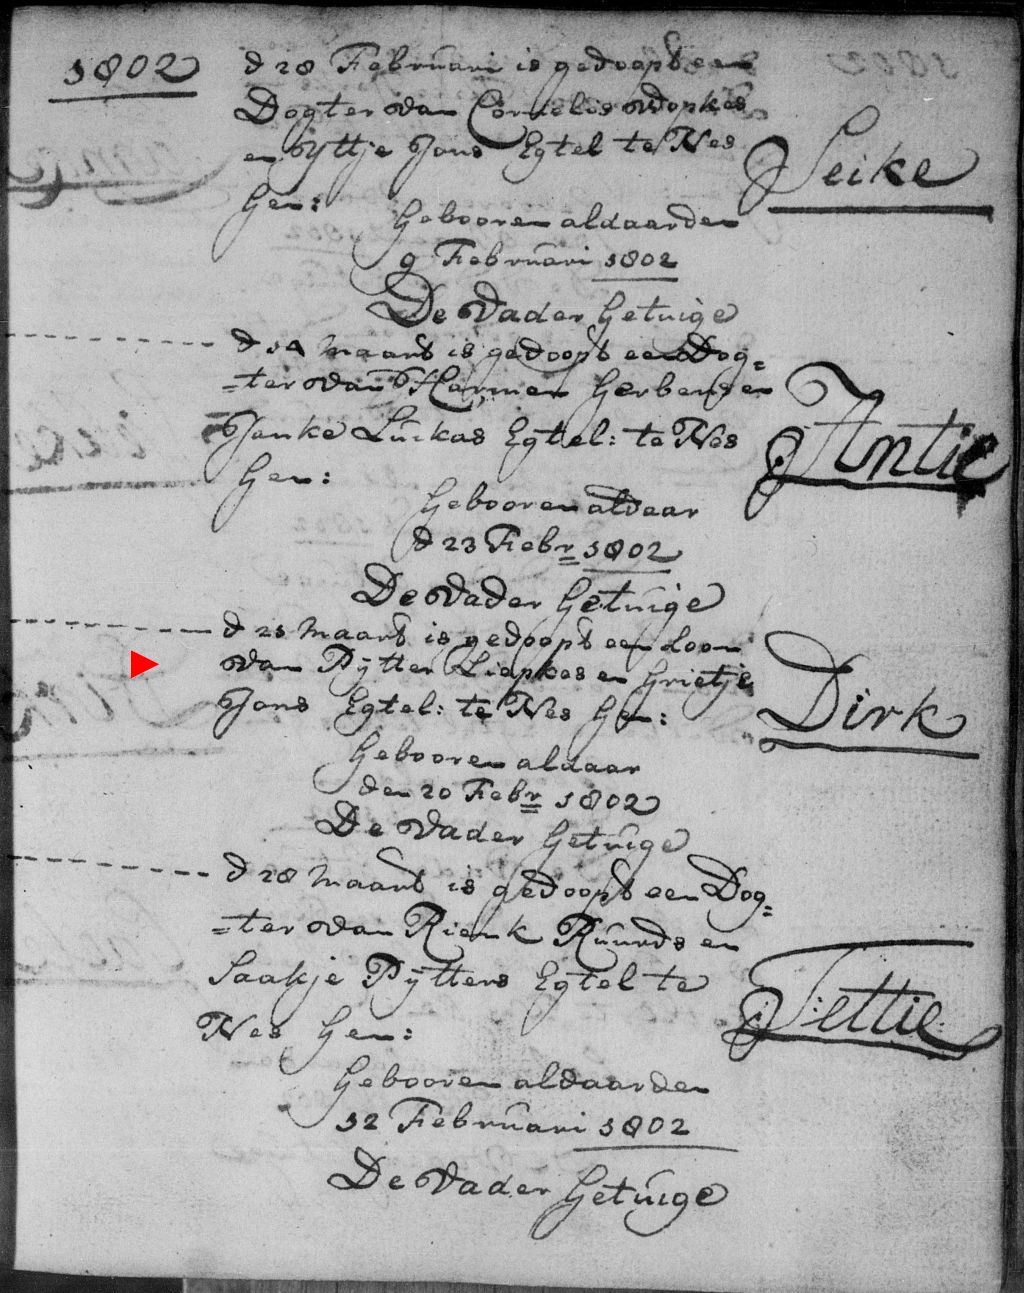 1802
d 28 Februari is gedoopt een
Dogter van Cornelis Wopkes
en Yttje Jans Egtel te Nes
Gen:
Seike
Gebooren aldaar den
9 Februari 1802
De Vader Getuige
d 14 Maart is gedoopt een Dog=
=ter van Harmen Gerbens en
Janke Luckas Egtel: te Nes
Gen:
Antie
Gebooren aldaar
d 23 Febr 1802
De Vader Getuige
d 21 Maart is gedoopt een Soon
van Pÿtter Liepkes en Grietje
Jans Egtel: te Nes Gen:
Dirk
Gebooren aldaar
den 20 Febr 1802
De Vader Getuige
d 28 Maart is gedoopt een Dog=
=ter van Rienk Ruurds en
Saakje Pÿtters Egtel te
Nes Gen:
Jettie
Gebooren aldaar den
12 Februari 1802
De Vader Getuige